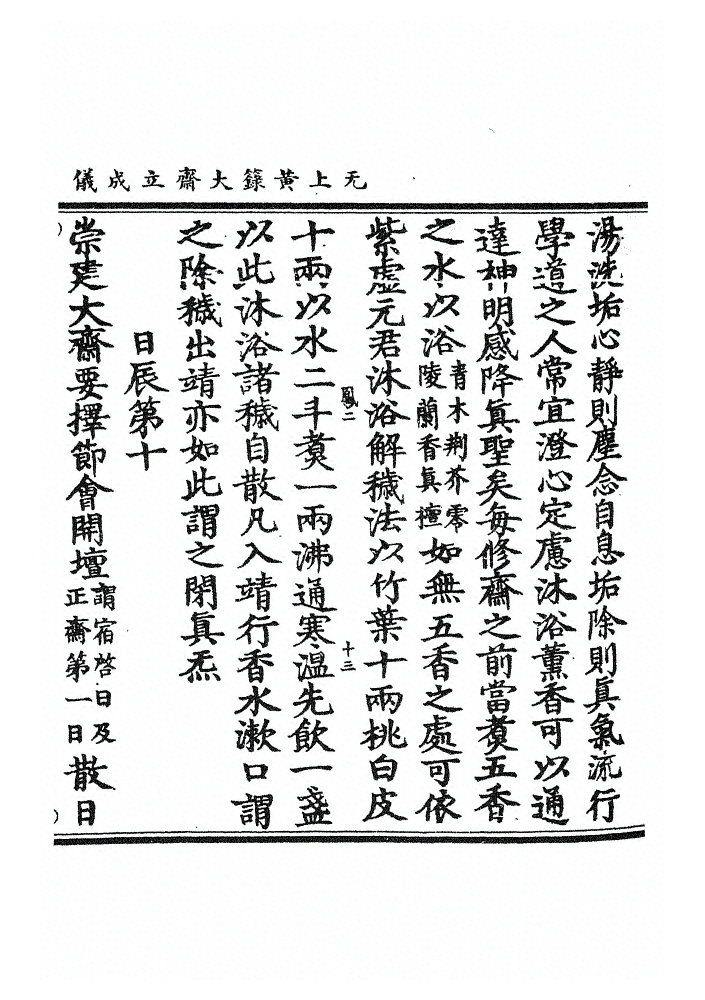 无上黃籙大齋立成儀
湯洗垢心靜則塵念自息垢除則真氣流行
學道之人常宜澄心定慮沐浴薰香可以通
達神明感降真聖矣每修齋之前當煑五香
之水以浴青木荆芥零陵蘭香真檀如無五香之處可依
紫虛元君沐浴解穢法以竹葉十兩桃白皮
鳳二 十三
十兩以水二斗煑一兩沸通寒溫先飲一盞
以此沐浴諸穢自散凡入靖行香水漱口謂
之除穢出靖亦如此謂之閉真炁
日辰第十
崇建大齋要擇節會開壇謂宿啓日及正齋第一日散日